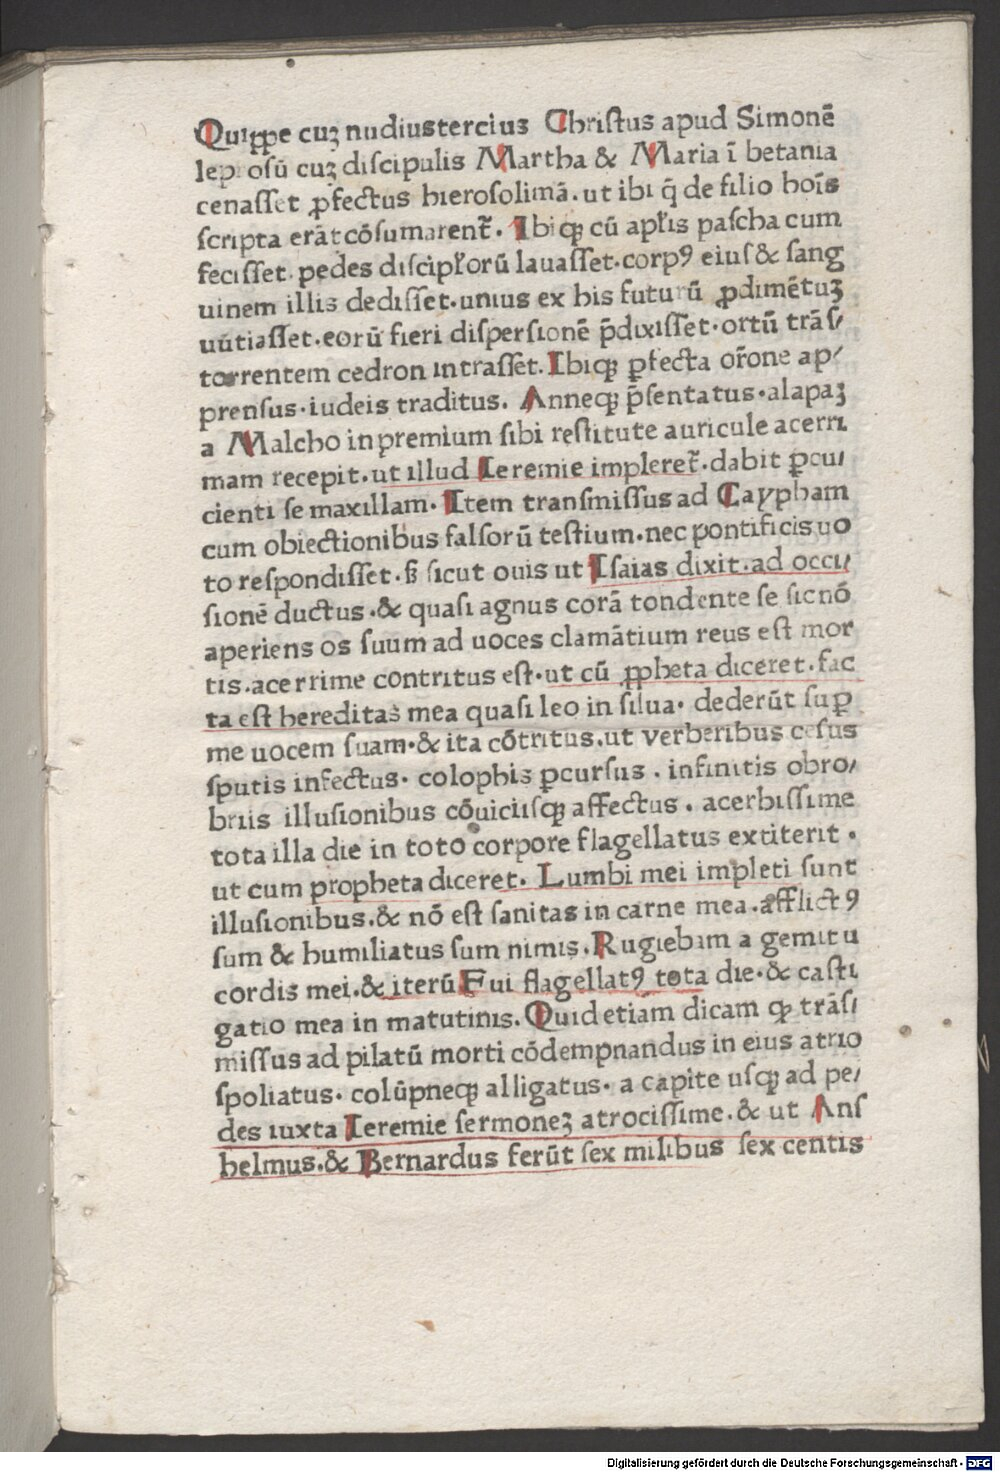 Quippe cuꝫ nudiustercius Christus apud Simonē
leprosū cuꝫ discipulis Martha & Maria ī betania
cenasset ꝓfectus hierosolimā. ut ibi q̄ de filio hoīs
scripta erāt cōsumarent᷑. Ibiqꝫ cū apl̄is pascha cum
fecisset. pedes discipl̄orū lauasset. corpꝰ eius & sang
uinem illis dedisset. unius ex his futurū ꝓdimētuꝫ
nūtiasset. eorū fieri dispersionē p̄dixisset. ortū trās/
torrentem cedron intrasset. Ibiqꝫ ꝑfecta or̄one ap/
prensus. iudeis traditus. Anneqꝫ p̄sentatus. alapaꝫ
a Malcho in premium sibi restitute auricule acerri
mam recepit. ut illud Ieremie impleret᷑. dabit ꝑcu/
cienti se maxillam. Item transmissus ad Caypham
cum obiectionibus falsorū testium. nec pontificis uo
to respondisset. ß sicut ouis ut Isaias dixit. ad occi/
sionē ductus. & quasi agnus corā tondente se sic nō
aperiens os suum ad uoces clamātium reus est mor
tis. acerrime contritus est. ut cū ꝓpheta diceret. fac
ta est hereditas mea quasi leo in silua. dederūt suꝑ
me uocem suam. & ita cōtritus. ut verberibus cesus
sputis infectus. colophis ꝑcursus. infinitis obro/
briis illusionibus cōuiciisqꝫ affectus. acerbissime
tota illa die in toto corpore flagellatus extiterit.
ut cum propheta diceret. Lumbi mei impleti sunt
illusionibus. & nō est sanitas in carne mea. afflictꝰ
sum & humiliatus sum nimis. Rugiebam a gemitu
cordis mei. & iterū Fui flagellatꝰ tota die. & casti
gatio mea in matutinis. Quid etiam dicam qꝫ trās/
missus ad pilatū morti cōdempnandus in eius atrio
spoliatus. colūpneqꝫ alligatus. a capite usqꝫ ad pe/
des iuxta Ieremie sermoneꝫ atrocissime. & ut Ans
helmus. & Bernardus ferūt sex milibus sex centis
Digitalisierung gefördert durch die Deutsche Forschungsgemeinschaft - DFG